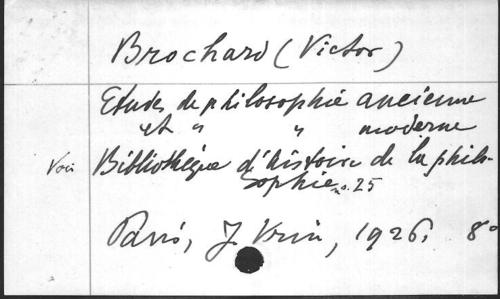 Brochard (Victor)
Etudes de philosophie ancienne
et " " moderne
Voir Bibliothèque d'histoire de la philo-
sophie no. 25
Paris, J. Vrin, 1926. 8°